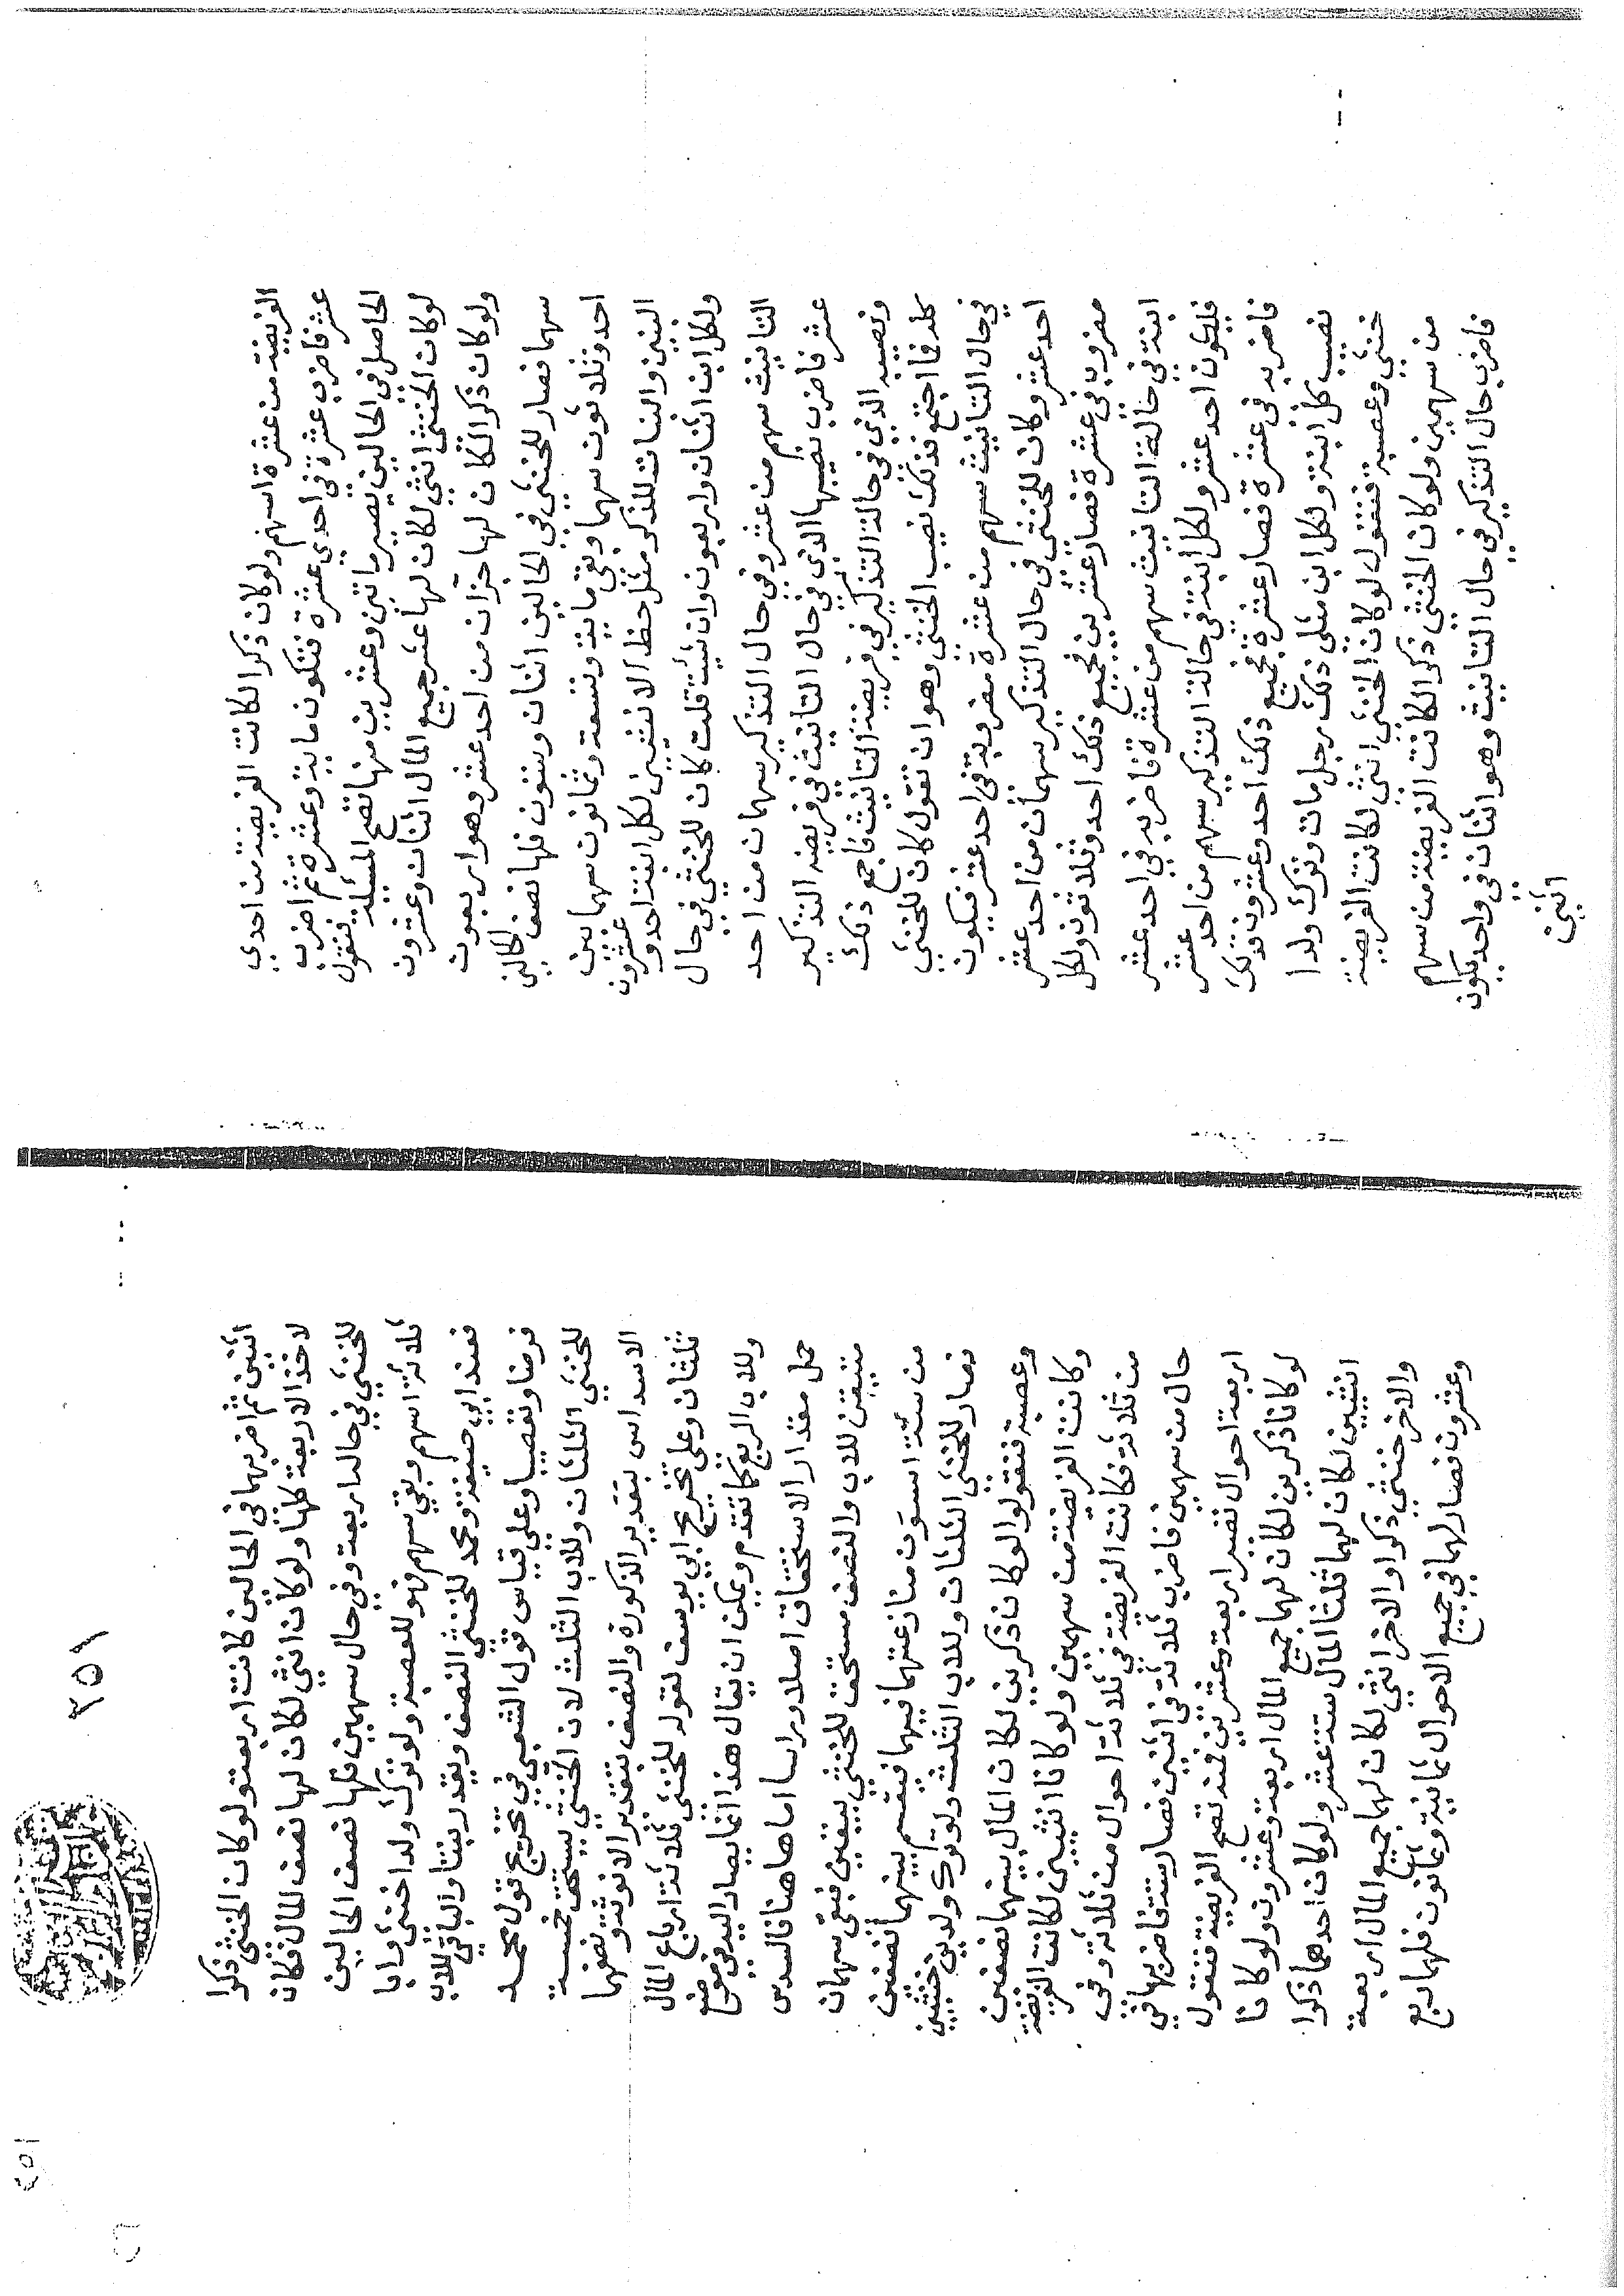 الفريضة من عشرة اسهم ولو كان ذكرا لكانت الفريضة من احدي
عشر فاضرب عشرة في احدي عشرة فتكون ماية وعشرة ثم اضرب
الحاصل في الحالين يصير ماتين وعشرين منها تصح المسيلة فنقول
لو كان الخنثى انثي لكان لها عشر جميع المال اثنان وعشرون
ولو كان ذكرا لكان لها جزآن من احد عشر وهو اربعون
سهما فصار للخنثي في الحالين اثنان وستون فلها نصف الحالين
احد وثلاثون سهما وبقي ماية وتسعة وثمانون سهما بين
البنين والبنات للذكر مثل حظ الانثيين لكل ابنة احد وعشرون
ولكل ابن اثنان واربعون وان شيت قلت كان للخنثي في حال
التانيث سهم من عشر وفي حال التذكير سهمان من احد
عشر فاضرب نصيبها الذي في حال التانيث في فريضة التذكير
ونصيبه الذي في حالة التذكير في فريضة التانيث فاجمع ذلك
كله فما اجتمع فذلك نصيب الخنثي وهو ان تقول كان للخنثي
في حال التانيث سهم من عشرة مضروبة في احد عشر فيكون
احد عشر وكان للخنثي في حال التذكير سهمان من احد عشر
مضروب في عشرة فصار عشرين فجميع ذلك احد وثلاثون ولكل
ابنة في حالة التانيث سهم من عشرة فاضربه في احد عشر
فليكون احد عشر ولكل ابنة في حالة التذكير سهم من احد عشر
فاضربه في عشرة فصار عشرة فجميع ذلك احد وعشرون فذلك
نصيب كل ابنة ولكل ابن مثلي ذلك رجل مات وترك ولدا
خنثي وعصبة فنقول لو كان الخنثي انثي لكانت الفريضة
من سهمين ولو كان الخنثي ذكرا لكانت الفريضة من سهم
فاضرب حال التذكير في حال التانيث وهو اثنان في واحد يكون
اثنين
٢٥١
اثنين ثم اضربهما في الحالين كانت اربعة ولو كان الخنثي ذكرا
لاخذ الاربعة كلها ولو كان انثي لكان لها نصف المال فكان
للخنثي في حال اربعة وفي حال سهمين فلها نصف الحالين
ثلاثة اسهم وبقي سهم فهو للعصبة ولو ترك ولدا خنثي وابا
فعند ابي حنيفة ومحمد للخنثي النصف ويقدر بنتا والباقي للاب
فرضا وتعصيبا وعلي قياس قول الشعبي في تخريج قول محمد
للخنثي الثلثان وللاب الثلث لان الخنثي يستحق خمسة
الاسداس بتقدير الذكورة والنصف بتقدير الانوثة ونصفهما
ثلثان وعلي تخريج ابي يوسف لقوله للخنثي ثلاثة ارباع المال
وللاب الربع كما تقدم ويمكن ان يقال هذا انما يصار اليه في موضع
جهل مقدار الاستحقاق اصلا وراسا اما هاهنا فالسدس
متيقن للاب والنصف مستحق للخنثي بيقين فبقي سهمان
من ستة استوت منازعتهما فيهما فيقسم بينهما نصفين
فصار للخنثي الثلثان وللاب الثلث ولو ترك ولدين خنثيين
وعصبة فنقول لو كان ذكرين لكان المال بينهما نصفين
وكانت الفريضة من سهمين ولو كانا انثيين لكانت الفريضة
من ثلاثة فكانت الفريضة في ثلاثة احوال من ثلاثة وفي
حال من سهمين فاضرب ثلاثة في اثنين فصار ستة فاضربها في
اربعة احوال تصير اربعة وعشرين فمنه تصح الفريضة فنقول
لو كانا ذكرين لكان لهما جميع المال اربعة وعشرون ولو كانا
انثيين لكان لهما ثلثا المال ستة عشر ولو كان احدهما ذكرا
والاخر خنثي ذكرا والاخر انثي لكان لهما جميع المال اربعة
وعشرون فصار لهما في جميع الاحوال ثمانية وثمانون فلهما ربع